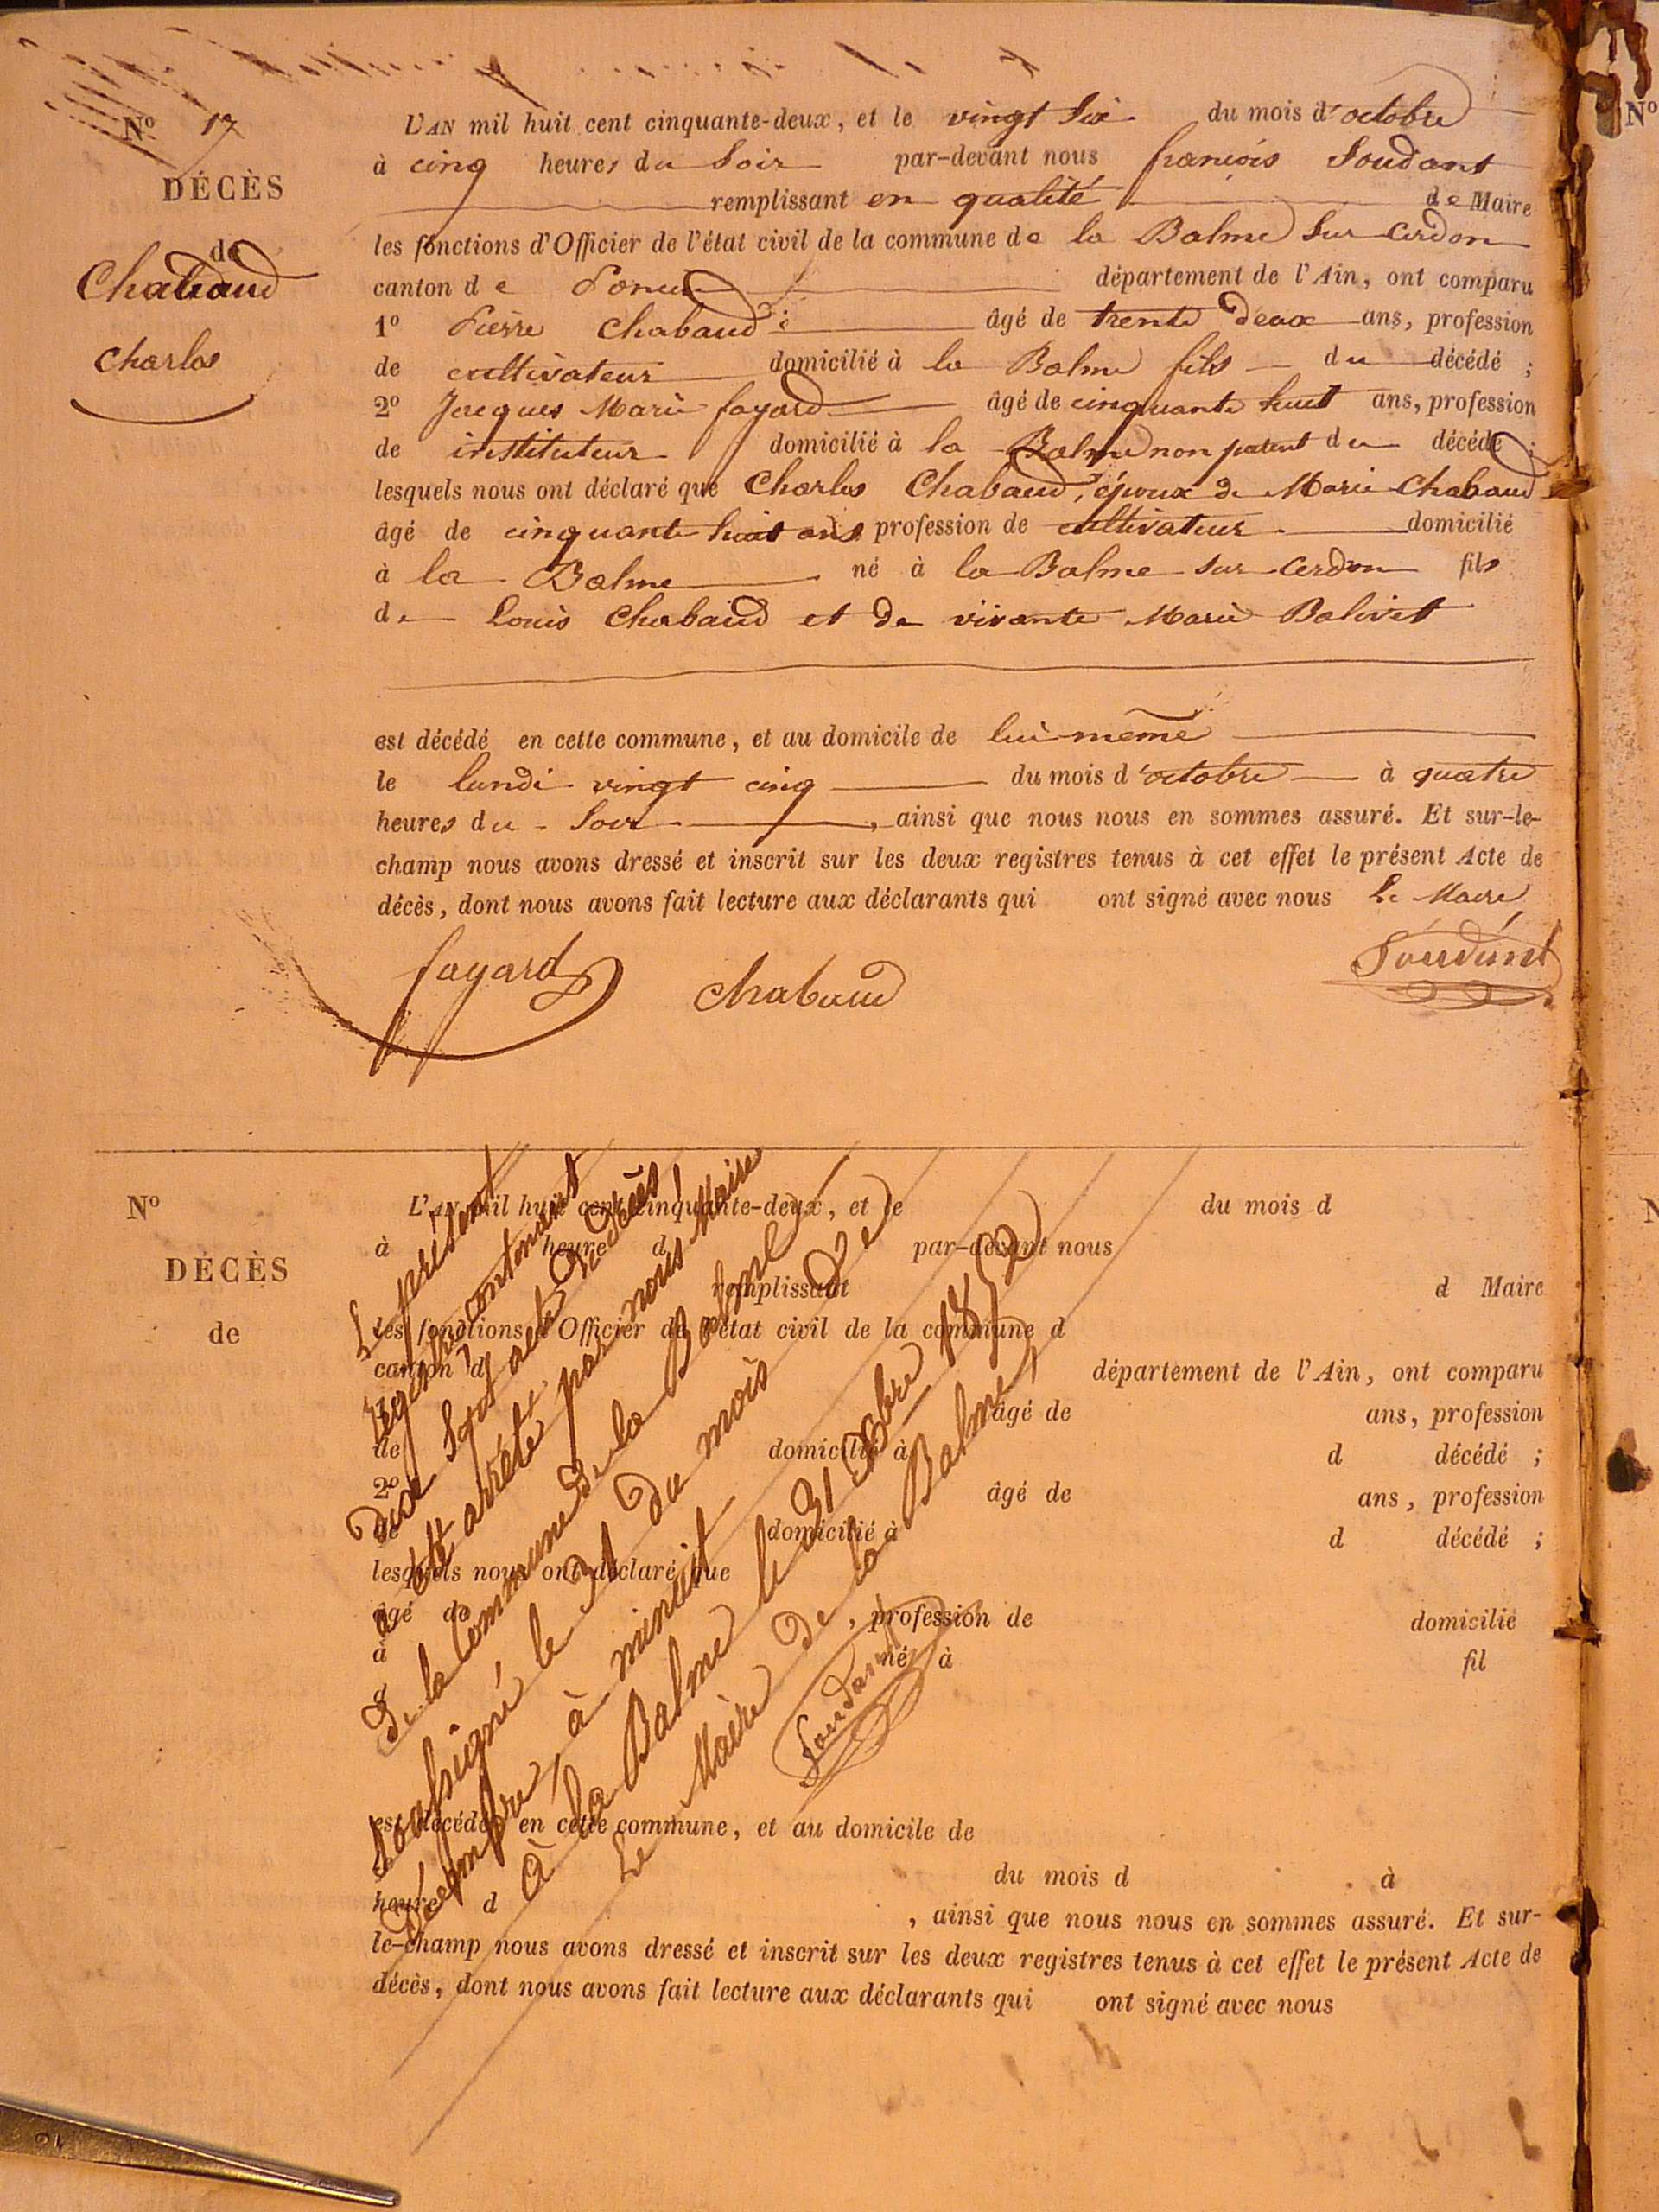 N° 17
DÉCÈS
de
Chabaud
Charles
L'AN mil huit cent cinquante-deux, et le vingt Six du mois d'octobre
à cinq heures du Soir par-devant nous françois Soudant
remplissant en qualité de Maire
les fonctions d'Officier de l'état civil de la commune de la Balme Sur Cerdon
canton de Poncin département de l'Ain, ont comparu
1° Pierre Chabaud âgé de trente deux ans, profession
de cultivateur domicilié à la Balme fils du décédé ;
2° Jacques Marie fayard âgé de cinquante huit ans, profession
de instituteur domicilié à la Balme non parent du décédé ;
lesquels nous ont déclaré que Charles Chabaud, époux de Marie Chabaud
âgé de cinquante huit ans profession de cultivateur domicilié
à la Balme né à la Balme sur Cerdon fils
de Louis Chabaud et de vivante Marie Balivet
est décédé en cette commune, et au domicile de lui-même
le lundi vingt cinq du mois d'octobre à quatre
heures du Soir, ainsi que nous nous en sommes assuré. Et sur-le-
champ nous avons dressé et inscrit sur les deux registres tenus à cet effet le présent Acte de
décès, dont nous avons fait lecture aux déclarants qui ont signé avec nous Le Maire
fayard Chabaud Soudant
N°
DÉCÈS
de
L'AN mil huit cent cinquante-deux, et le du mois d
à heure d par-devant nous
remplissant d Maire
les fonctions d'Officier de l'état civil de la commune d
canton d département de l'Ain, ont comparu
âgé de ans, profession
de domicilié à d décédé ;
2° âgé de ans, profession
de domicilié à d décédé ;
lesquels nous ont déclaré que
âgé de , profession de domicilié
à né à fil
d
est décédé en cette commune, et au domicile de
du mois d à
heure d , ainsi que nous nous en sommes assuré. Et sur-
le-champ nous avons dressé et inscrit sur les deux registres tenus à cet effet le présent Acte de
décès, dont nous avons fait lecture aux déclarants qui ont signé avec nous
Le présent
registre contenant
dix Sept actes de Décès
a été arrêté par nous Maire
de la Commune de la Balme
Soussigné le 31 du mois de
Décembre, à minuit
à la Balme le 31 Xbre 1852
Le Maire de la Balme,
Soudant
N°